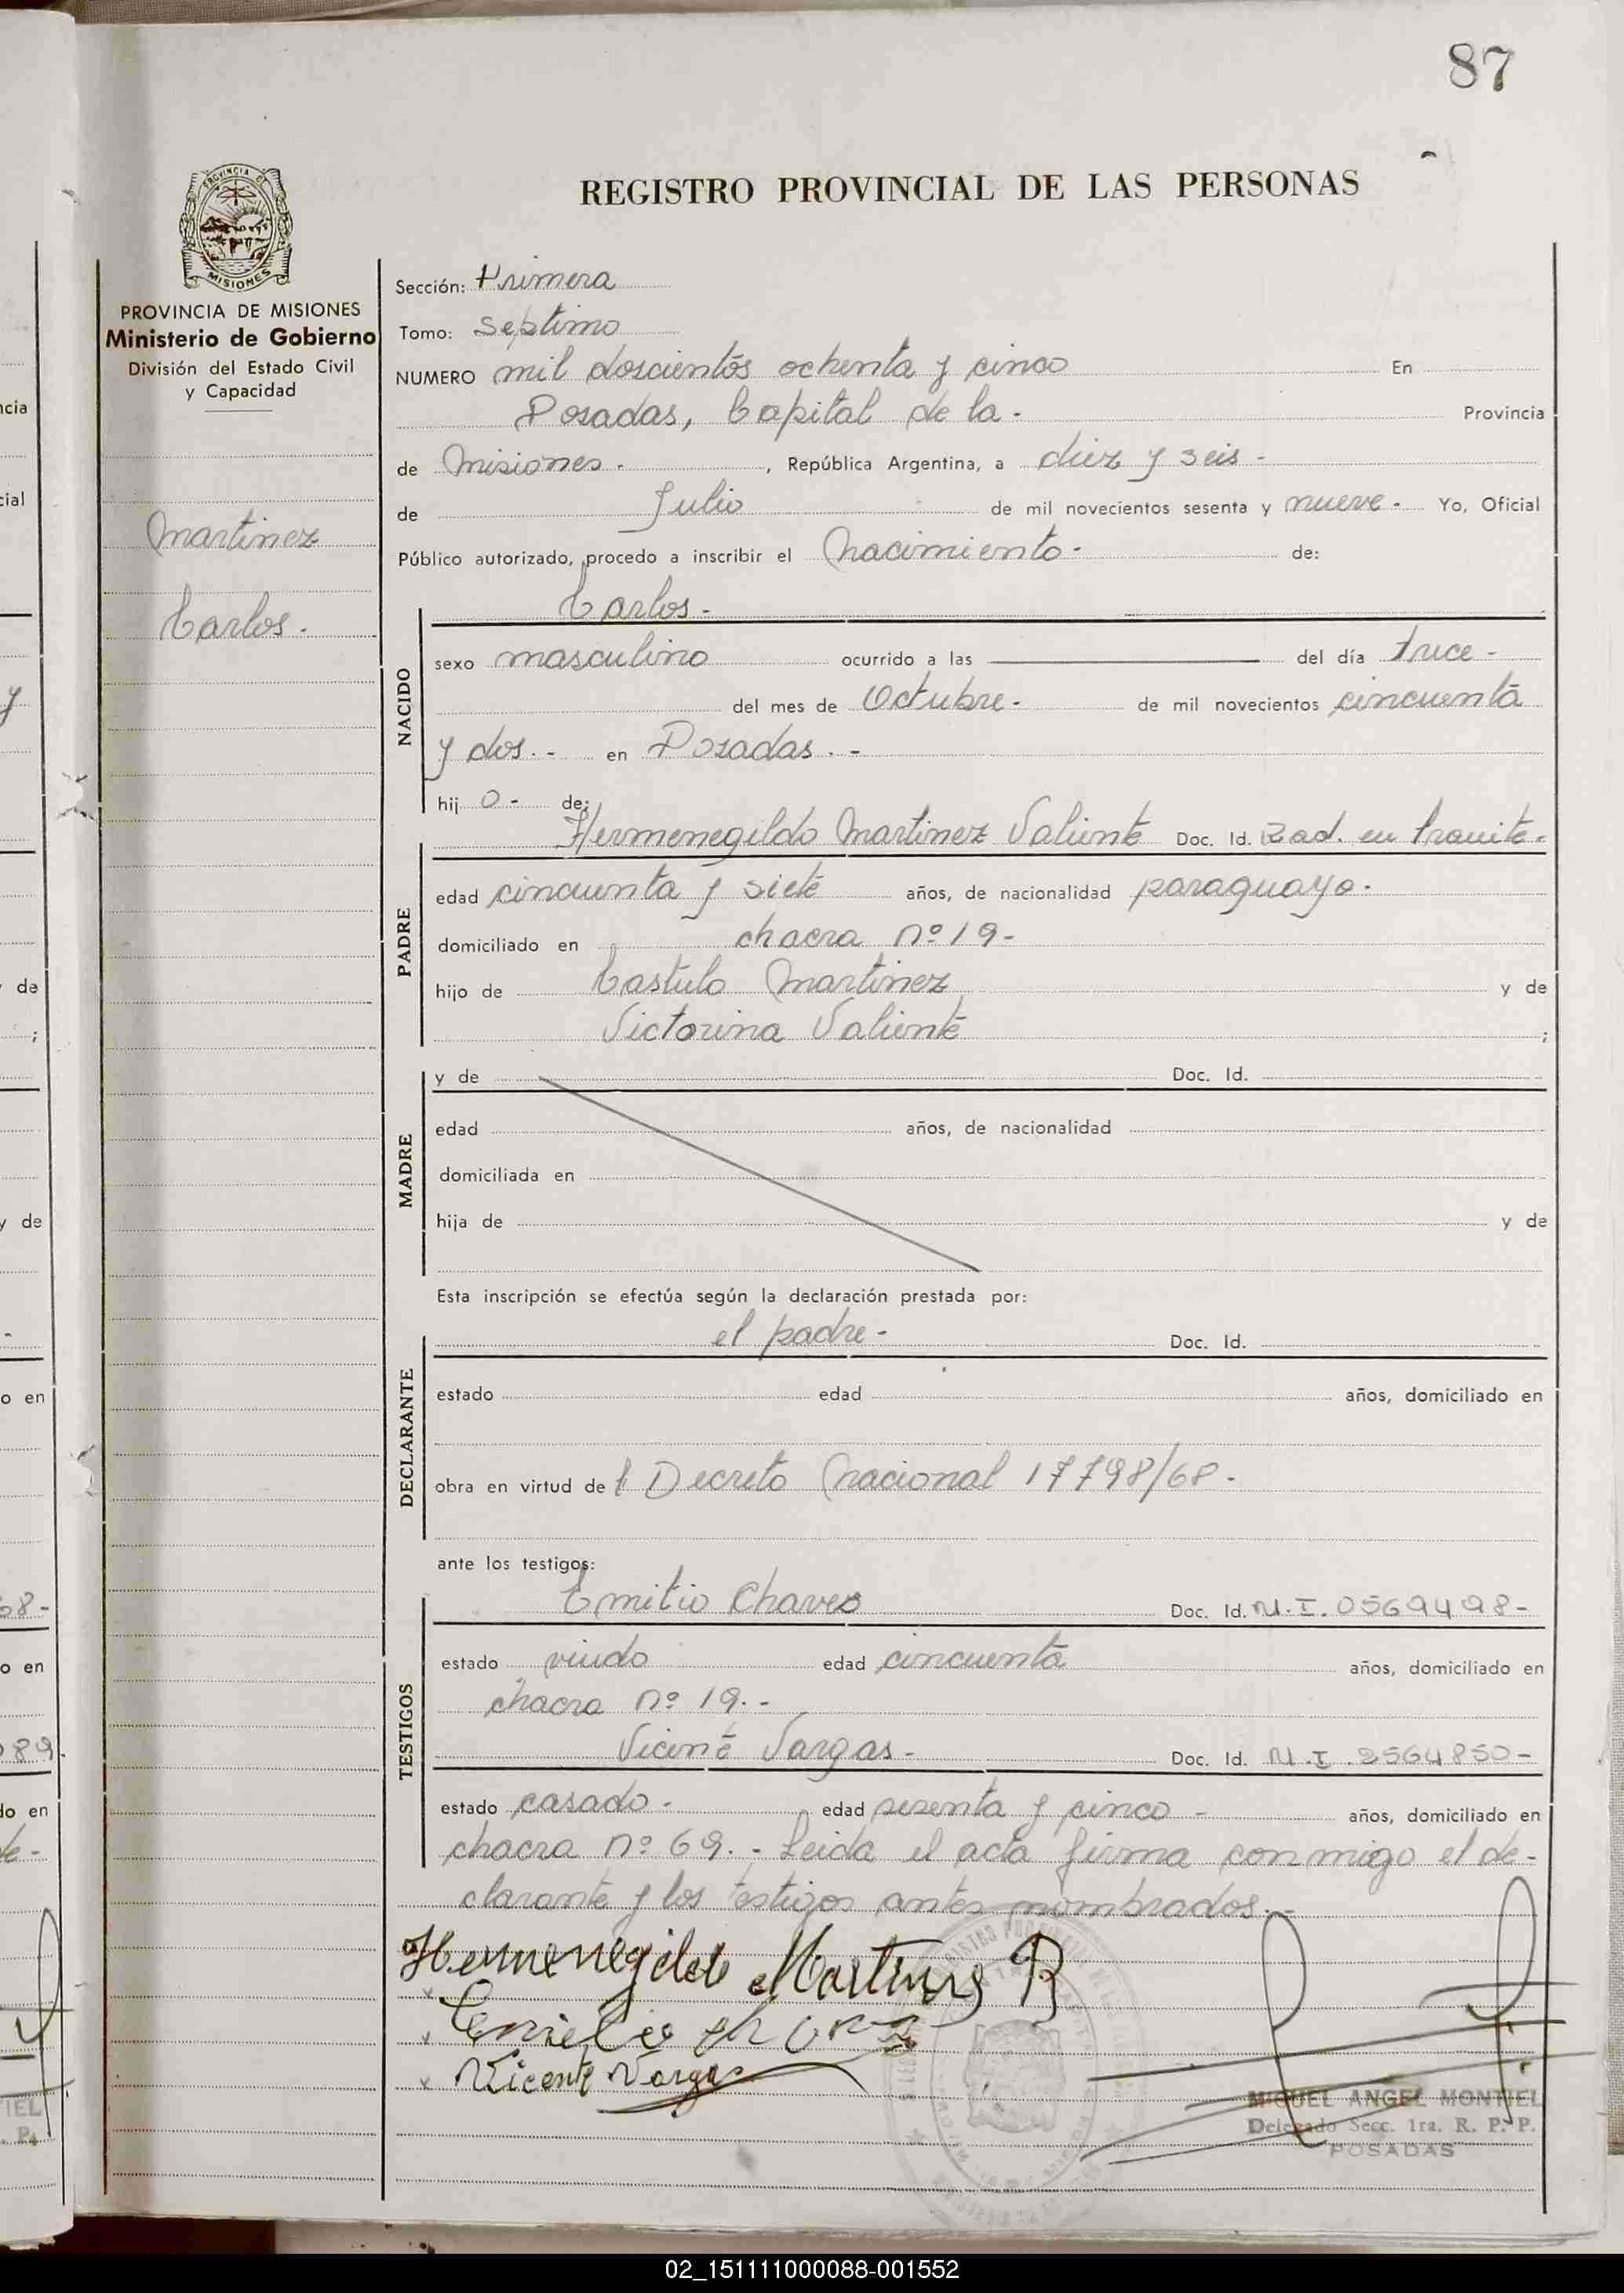 87
REGISTRO PROVINCIAL DE LAS PERSONAS
PROVINCIA DE MISIONES
Ministerio de Gobierno
División del Estado Civil
y Capacidad
Martinez
Carlos.-
Sección: Primera
Tomo: Septimo
NUMERO mil doscientos ochenta y cinco En
Posadas, Capital de la - Provincia
de Misiones. , República Argentina, a diez y seis -
de Julio de mil novecientos sesenta y nueve - Yo, Oficial
Público autorizado, procedo a inscribir el Nacimiento - de:
Carlos -
NACIDO
sexo masculino ocurrido a las del día trece -
del mes de Octubre - de mil novecientos cincuenta
y dos. - en Posadas. -
hij o - de:
Hermenegildo Martinez Valiente Doc. Id. Rad. en tramite.
PADRE
edad cincuenta y siete años, de nacionalidad paraguayo.
domiciliado en chacra nº 19 -
hijo de Castulo Martinez y de
Victorina Valiente ;
MADRE
y de Doc. Id.
edad años, de nacionalidad
domiciliada en
hija de y de
Esta inscripción se efectúa según la declaración prestada por:
el padre - Doc. Id.
DECLARANTE
estado edad años, domiciliado en
obra en virtud de l Decreto Nacional 17798/68 -
ante los testigos:
Emilio Chaves Doc. Id. M.I. 0569498-
TESTIGOS
estado viudo edad cincuenta años, domiciliado en
chacra nº 19. -
Vicente Vargas - Doc. Id. M.I. 2564850-
estado casado - edad sesenta y cinco - años, domiciliado en
chacra nº 69. - Leida el acta firma conmigo el de-
clarante y los testigos antes nombrados. -
Hermenegildo Martines
Vicente Vargas
MIGUEL ANGEL MONTIEL
Delegado Secc. 1ra. R. P. P.
POSADAS
02_151111000088-001552